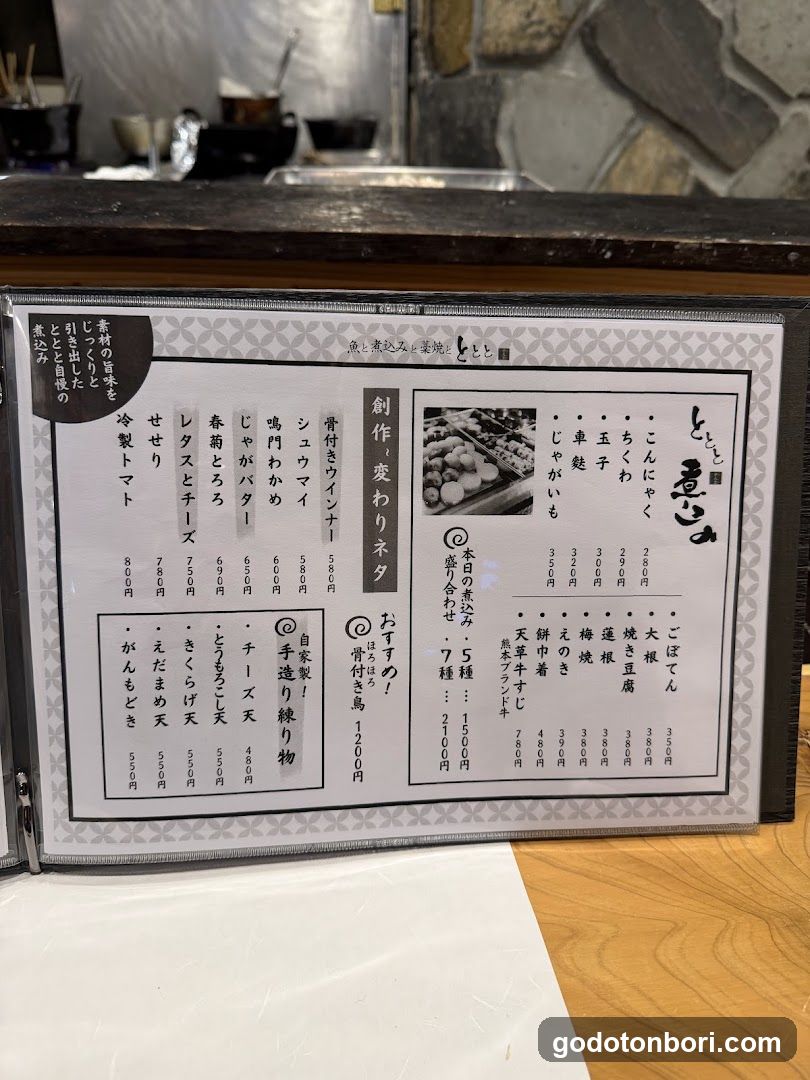 魚と煮込みと藁焼と ととと
素材の旨味を
じっくりと
引き出した
ととと自慢の
煮込み
ととと 煮込み
・こんにゃく 280円
・ちくわ 290円
・玉子 300円
・車麩 320円
・じゃがいも 350円
・ごぼてん 350円
・大根 380円
・焼き豆腐 380円
・蓮根 380円
・梅焼 380円
・えのき 390円
・餅巾着 480円
・天草牛すじ 780円
熊本ブランド牛
本日の煮込み
盛り合わせ
・5種… 1500円
・7種… 2100円
創作〜変わりネタ
骨付きウインナー 580円
シュウマイ 580円
鳴門わかめ 600円
じゃがバター 650円
春菊とろろ 690円
レタスとチーズ 750円
せせり 780円
冷製トマト 800円
おすすめ!
ほろほろ
骨付き鳥 1200円
自家製!
手造り練り物
・チーズ天 480円
・とうもろこし天 550円
・きくらげ天 550円
・えだまめ天 550円
・がんもどき 550円
godotonbori.com